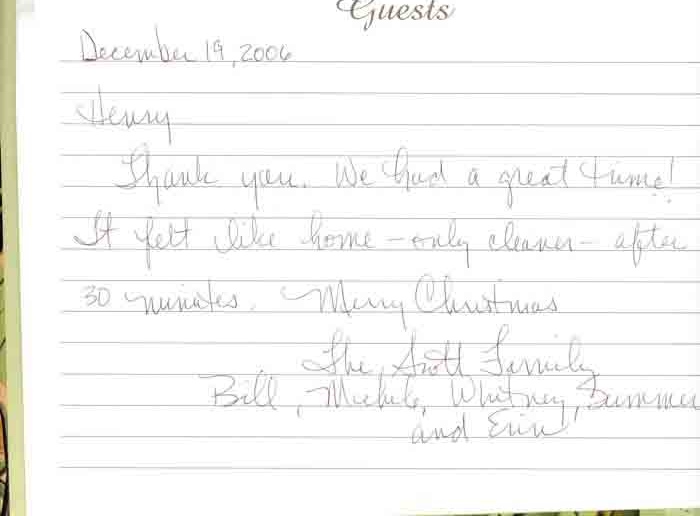 Guests
December 19, 2006
Henry
Thank you. We had a great time!
It felt like home - only cleaner - after
30 minutes. Merry Christmas
The Scott Family
Bill, Michele, Whitney, Summer
and Erin